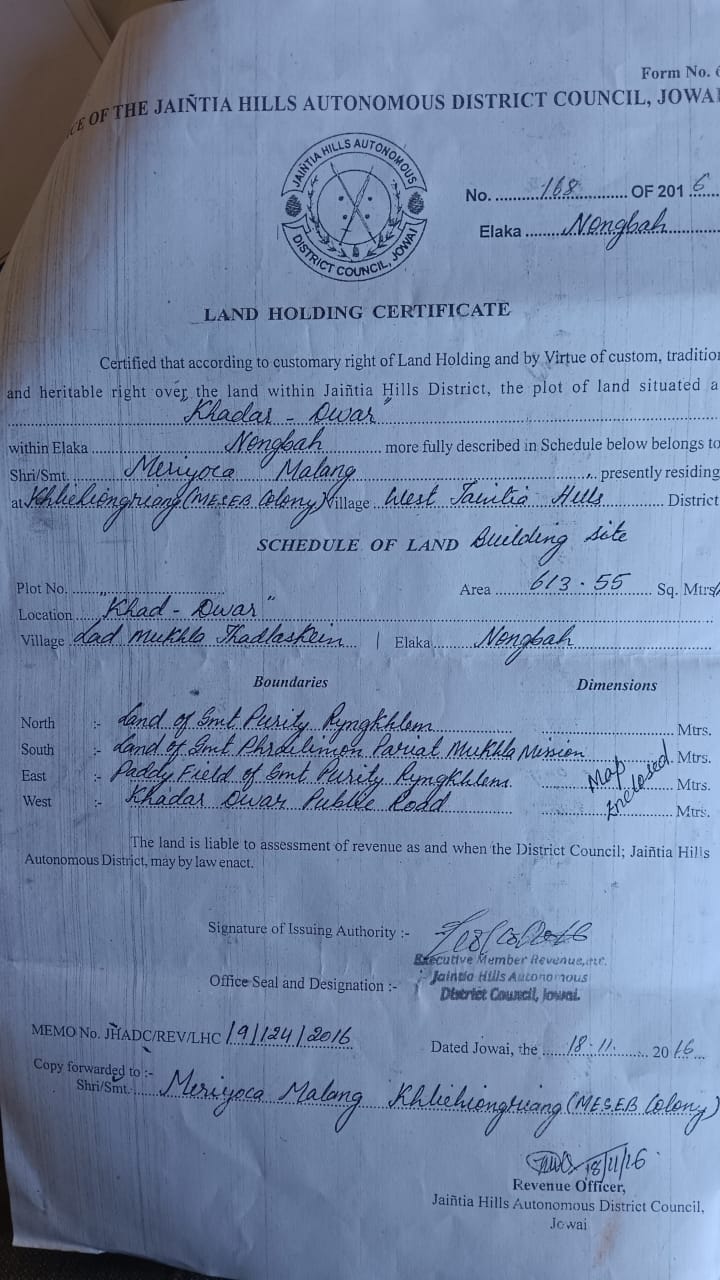 Form No. 6
CE OF THE JAIÑTIA HILLS AUTONOMOUS DISTRICT COUNCIL, JOWAI
JAIÑTIA HILLS AUTONOMOUS
DISTRICT COUNCIL, JOWAI
No. 168 OF 2016
Elaka Nongbah
LAND HOLDING CERTIFICATE
Certified that according to customary right of Land Holding and by Virtue of custom, tradition
and heritable right over the land within Jaiñtia Hills District, the plot of land situated a
Khadar - Dwar"
within Elaka Nongbah more fully described in Schedule below belongs to
Shri/Smt. Meriyoca Malang presently residing
at Khliehiongriang (MESEB Colony) Village West Jaintia Hills District
SCHEDULE OF LAND Building site
Plot No. " Area 613.55 Sq. Mtrs/
Location Khad - Dwar"
Village Lad Mukhla Thadlaskein | Elaka Nongbah
Boundaries Dimensions
North :- Land of Smt Purity Rymgkhlem Mtrs.
South :- Land of Smt Pariat Mukhla Mission Mtrs.
East :- Paddy Field of Smt Purity Rymgkhlem. Map Mtrs.
West :- Khadar Dwar Public Road Enclosed Mtrs.
The land is liable to assessment of revenue as and when the District Council; Jaiñtia Hills
Autonomous District, may by law enact.
Signature of Issuing Authority :-
Executive Member Revenue,
Office Seal and Designation :- Jaintia Hills Autonomous
District Council, Jowai.
MEMO No. JHADC/REV/LHC/19/124/2016
Dated Jowai, the 18.11. 2016
Copy forwarded to :-
Shri/Smt. Meriyoca Malang Khliehiongriang (MESEB Colony)
18/11/16
Revenue Officer,
Jaiñtia Hills Autonomous District Council,
Jowai